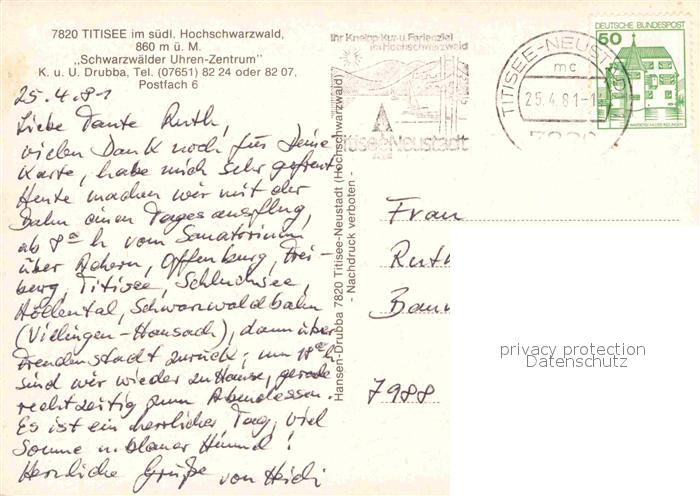 7820 TITISEE im südl. Hochschwarzwald,
860 m ü. M.
„Schwarzwälder Uhren-Zentrum"
K. u. U. Drubba, Tel. (07651) 82 24 oder 82 07,
Postfach 6
25.4.81
Liebe Tante Ruth,
vielen Dank noch für Deine
Karte, habe mich sehr gefreut
Heute machen wir mit der
Bahn einen Tagesausflug,
ab 8 h vom Sanatorium
über Achern, Offenburg, Frei-
burg, Titisee, Schluchsee,
Höllental, Schwarzwaldbahn
(Villingen-Hausach), dann über
Freudenstadt zurück; um 18 h
sind wir wieder zu Hause, gerade
rechtzeitig zum Abendessen.
Es ist ein herrlicher Tag, viel
Sonne u. blauer Himmel!
Herzliche Grüße von Heidi
Hansen-Drubba 7820 Titisee-Neustadt (Hochschwarzwald)
- Nachdruck verboten -
Ihr Kneipp-Kur-u. Ferienziel
im Hochschwarzwald
Titisee-Neustadt
TITISEE-NEUST
mc
25.4.81-1
7820
DEUTSCHE BUNDESPOST
50
Frau
Ruth
7988
privacy protection
Datenschutz